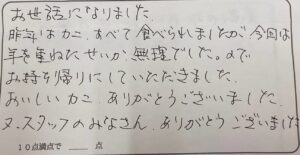 お世話になりました.
昨年はカニ、すべて食べられましたが、今回は
年を重ねたせいか、無理でした。なので
お持ち帰りにしていただきました.
おいしいカニ ありがとうございました.
又、スタッフのみなさん、ありがとう ございました
10点満点で ____ 点